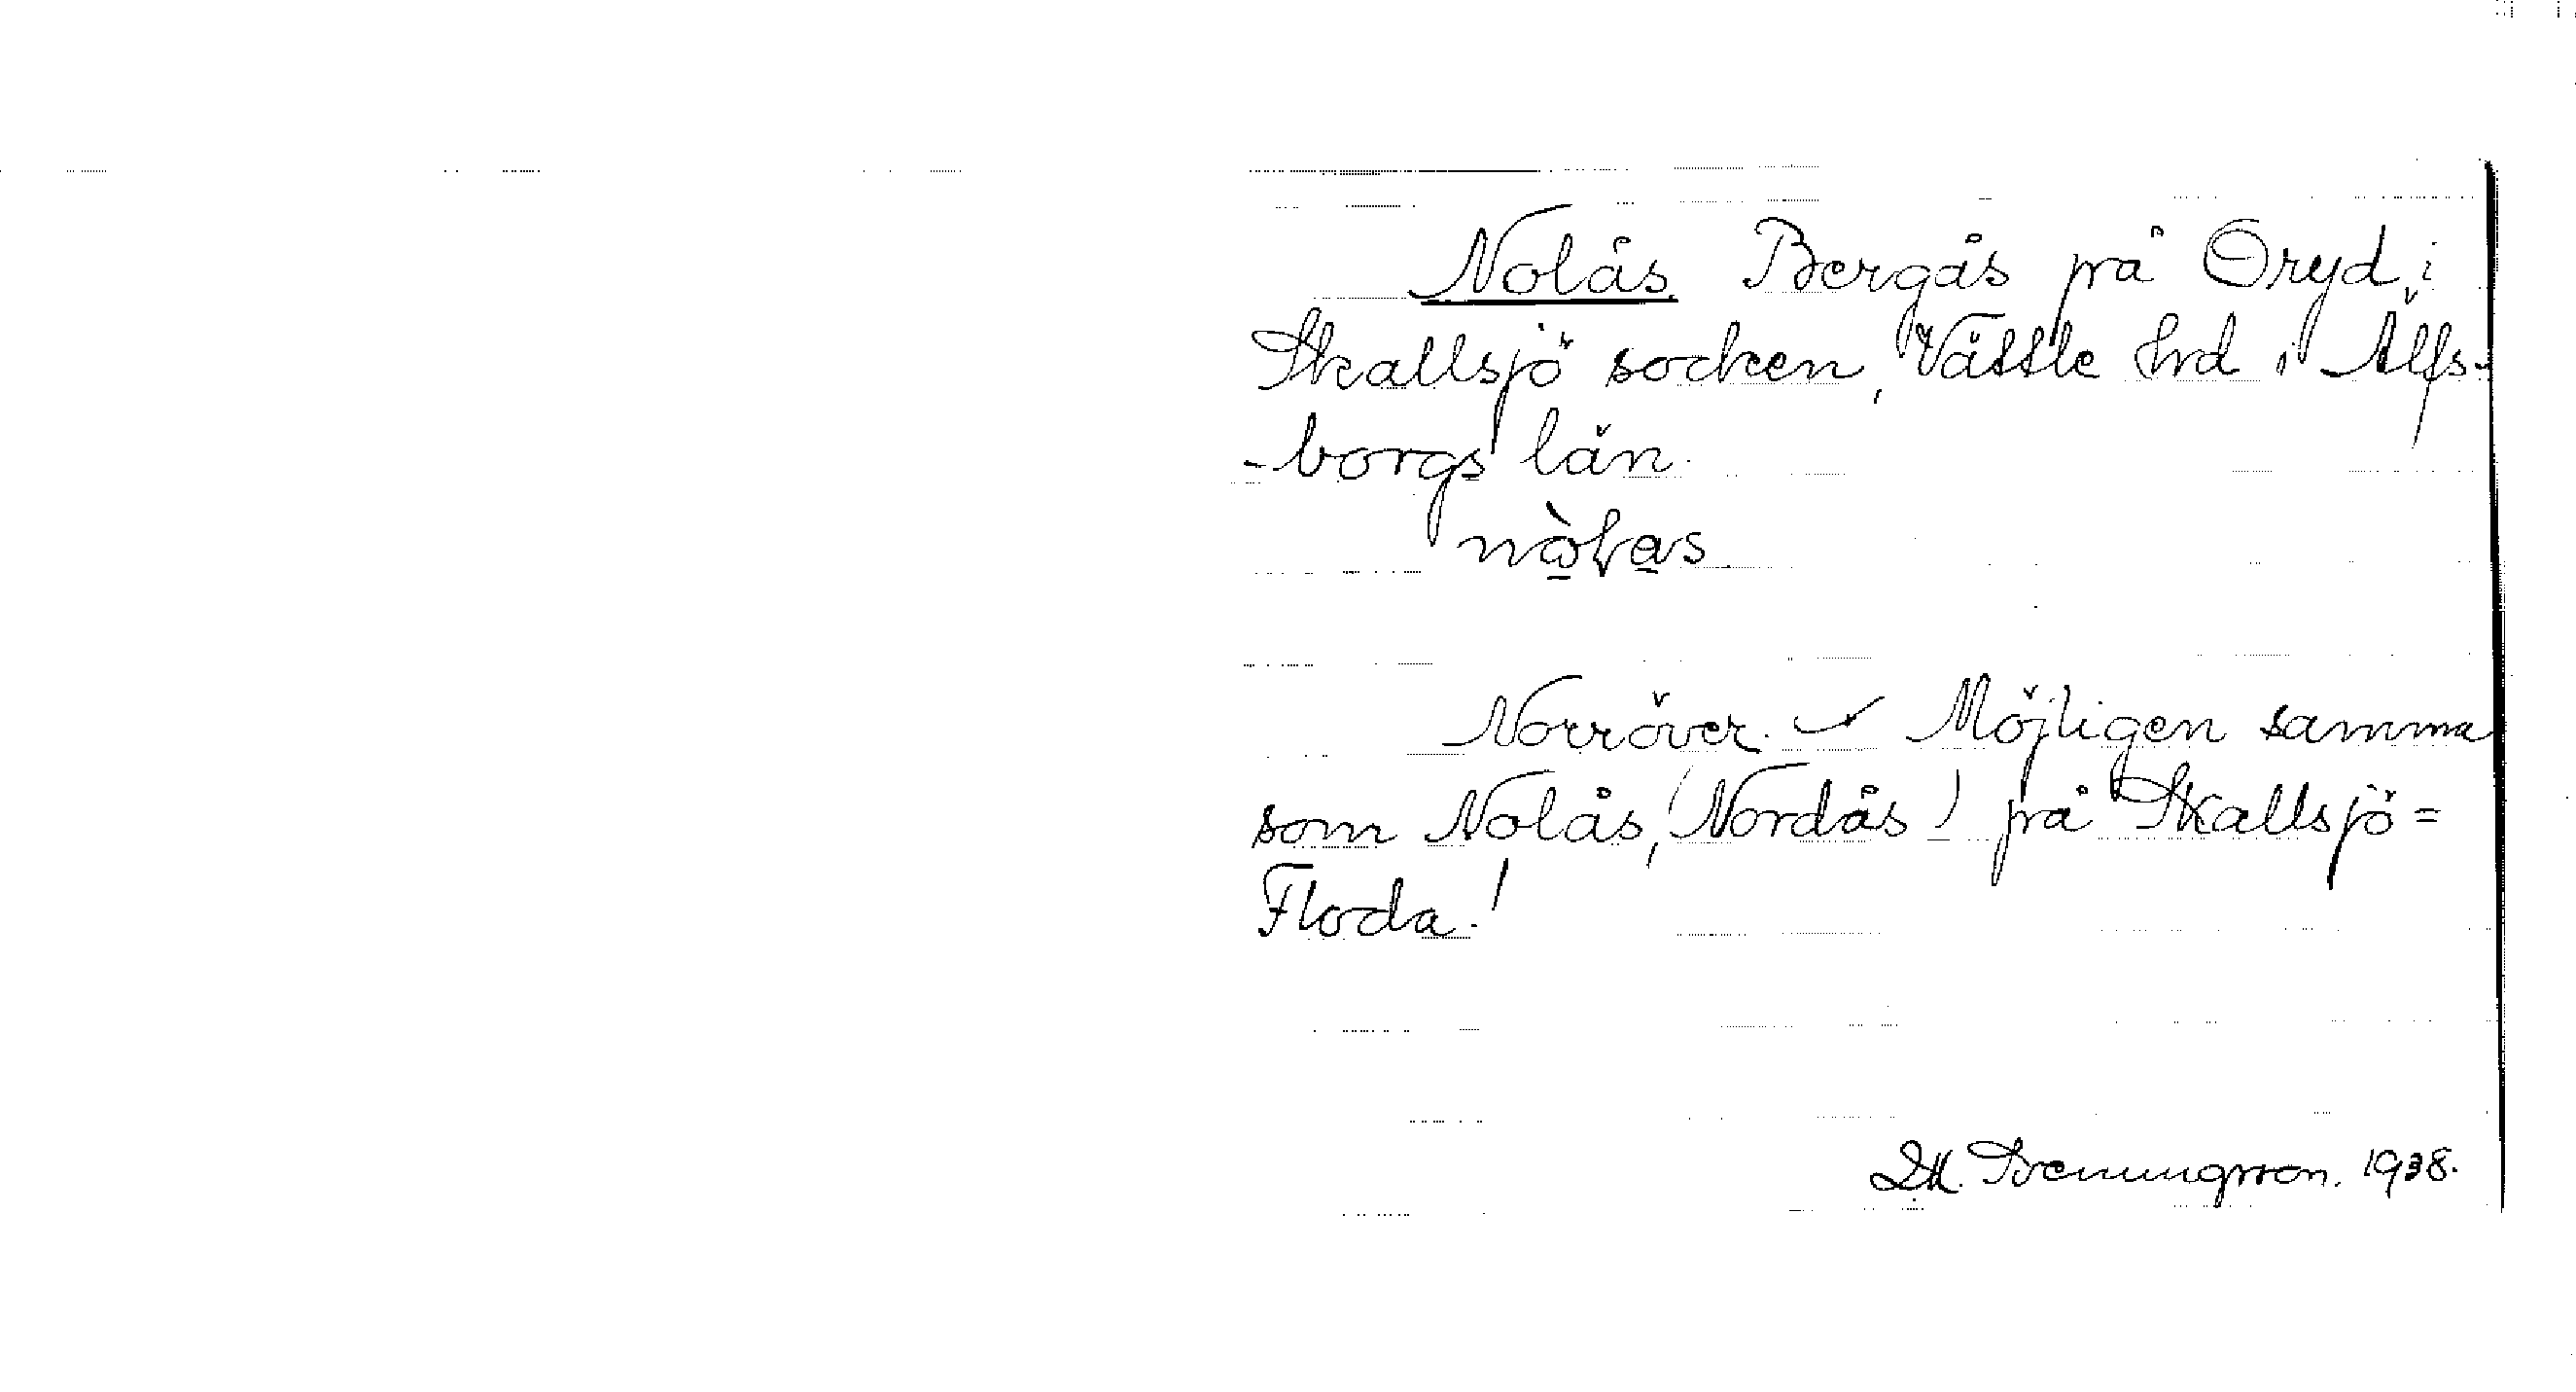 Nolås. Bergås på Öryd i
Skallsjö socken, Vättle hrd i Älfs-
-borgs län.
nò̱ɫa̱s.
Norröver. Möjligen samma
som Nolås, (Nordås) på Skallsjö=
Floda!
1938.